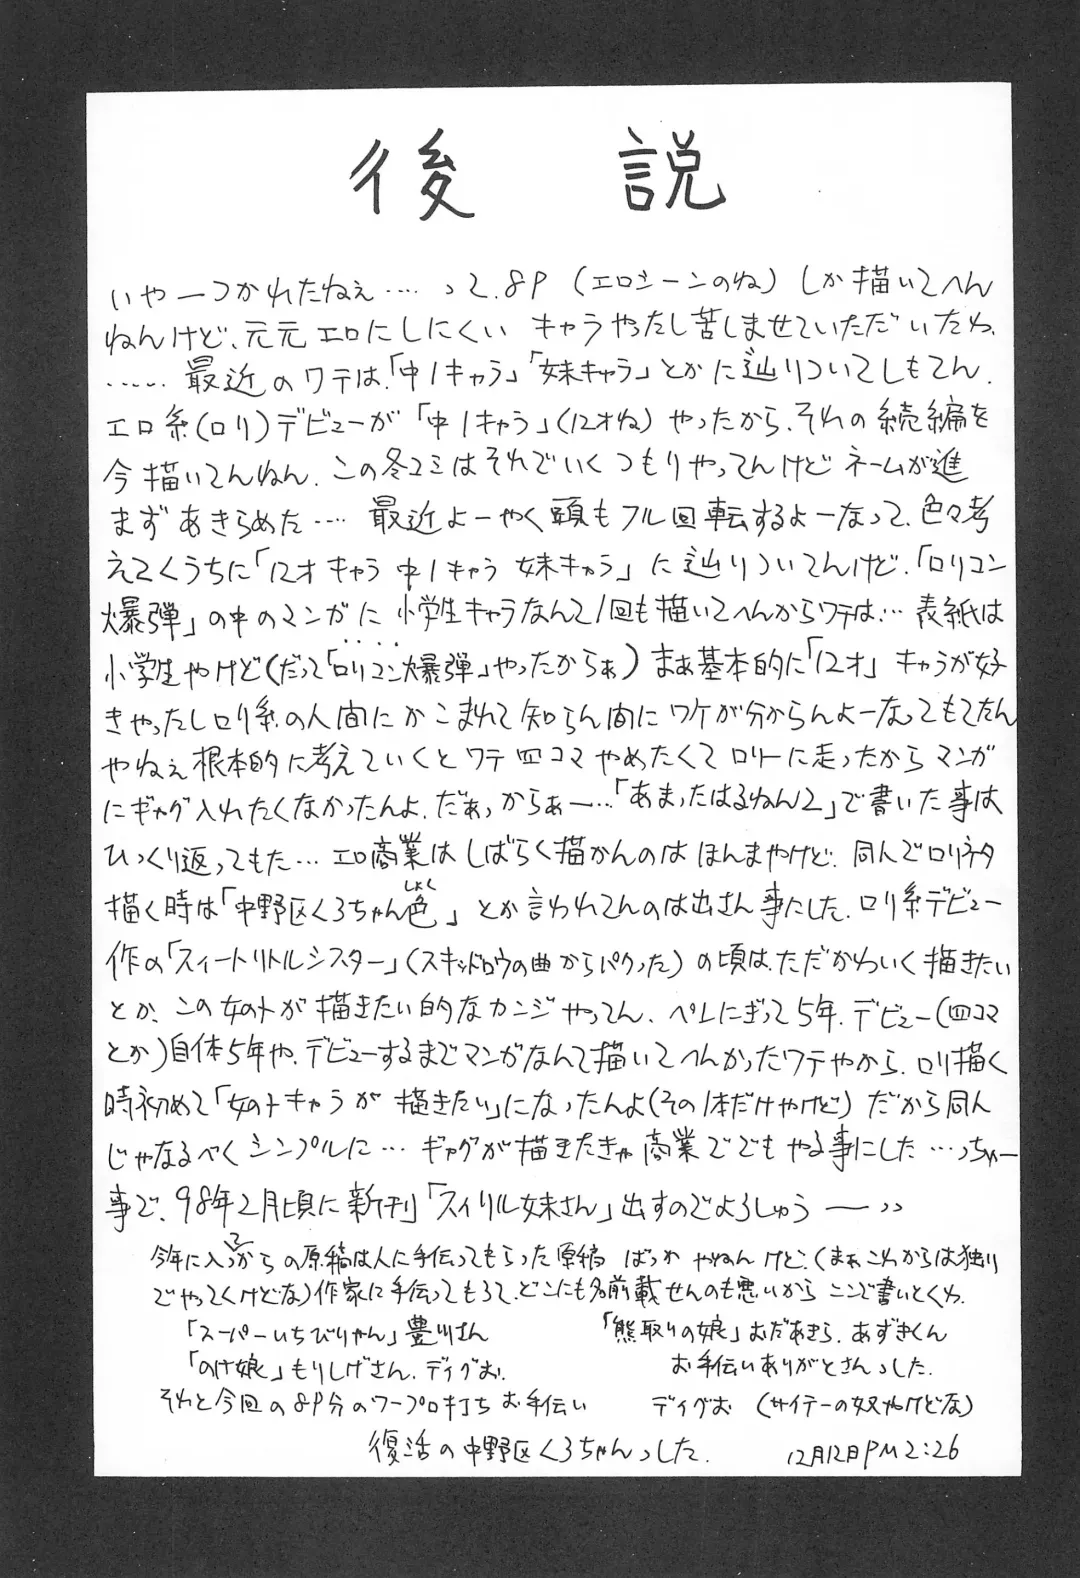 後説
いやーつかれたねぇ……って.8P（エロシーンのね）しか描いてへん
ねんけど、元元エロにしにくいキャラやったし苦しませていただいたわ.
……最近のワテは、「中1キャラ」「妹キャラ」とかに辿りついてしもてん.
エロ系(ロリ)デビューが「中1キャラ」(12才ね)やったから、それの続編を
今描いてんねん.この冬コミはそれでいくつもりやってんけどネームが進
まずあきらめた…. 最近よーやく頭もフル回転するよーなって、色々考
えてくうちに「12才キャラ 中1キャラ 妹キャラ」に辿りついてんけど.「ロリコン
爆弾」の中のマンガに小学生キャラなんて1回も描いてへんからワテは…表紙は
小学生やけど(だって「ロリコン爆弾」やったからぁ)まぁ基本的に「12才」キャラが好
きやったしロリ系の人間にかこまれて知らん間にワケが分からんよーなってもてたん
やねぇ根本的に考えていくとワテ四コマやめたくてロリーに走ったからマンガ
にギャグ入れたくなかったんよ.だぁっからぁー…「あまったはるねん2」で書いた事は
ひっくり返ってもた…エロ商業はしばらく描かんのはほんまやけど.同人でロリネタ
描く時は「中野区くろちゃん色(しょく)」とか言われてんのは出さん事にした.ロリ系デビュー
作の「スィートリトルシスター」(スキッドロウの曲からパクった)の頃は、ただかわいく描きたい
とか、この女のトが描きたい的なカンジやってん.ペンにぎって5年.デビュー(四コマ
とか)自体5年や.デビューするまでマンガなんて描いてへんかったワテやから.ロリ描く
時初めて「女のトキャラが描きたい」になったんよ(その1本だけやけど)だから同人
じゃなるべくシンプルに…ギャグが描きたきゃ商業ででもやる事にした…っちゅー
事で、98年2月頃に新刊「スィリル妹さん」出すのでよろしゅうー〃
今年に入ってからの原稿は人に手伝ってもらった原稿ばっかやねんけど.(まぁこれからは独り
でやってくけどな)作家に手伝ってもろて.どこにも名前載せんのも悪いからここで書いとくわ.
「スーパーいちびりやん」豊川さん 「熊取りの娘」おだあきら.あずきくん
「のけ娘」もりしげさん.ディグお. お手伝いありがとさんっした.
それと今回の8P分のワープロ打ちお手伝い ディグお(サイテーの奴やけどな)
復活の中野区くろちゃんっした. 12月12日PM2:26